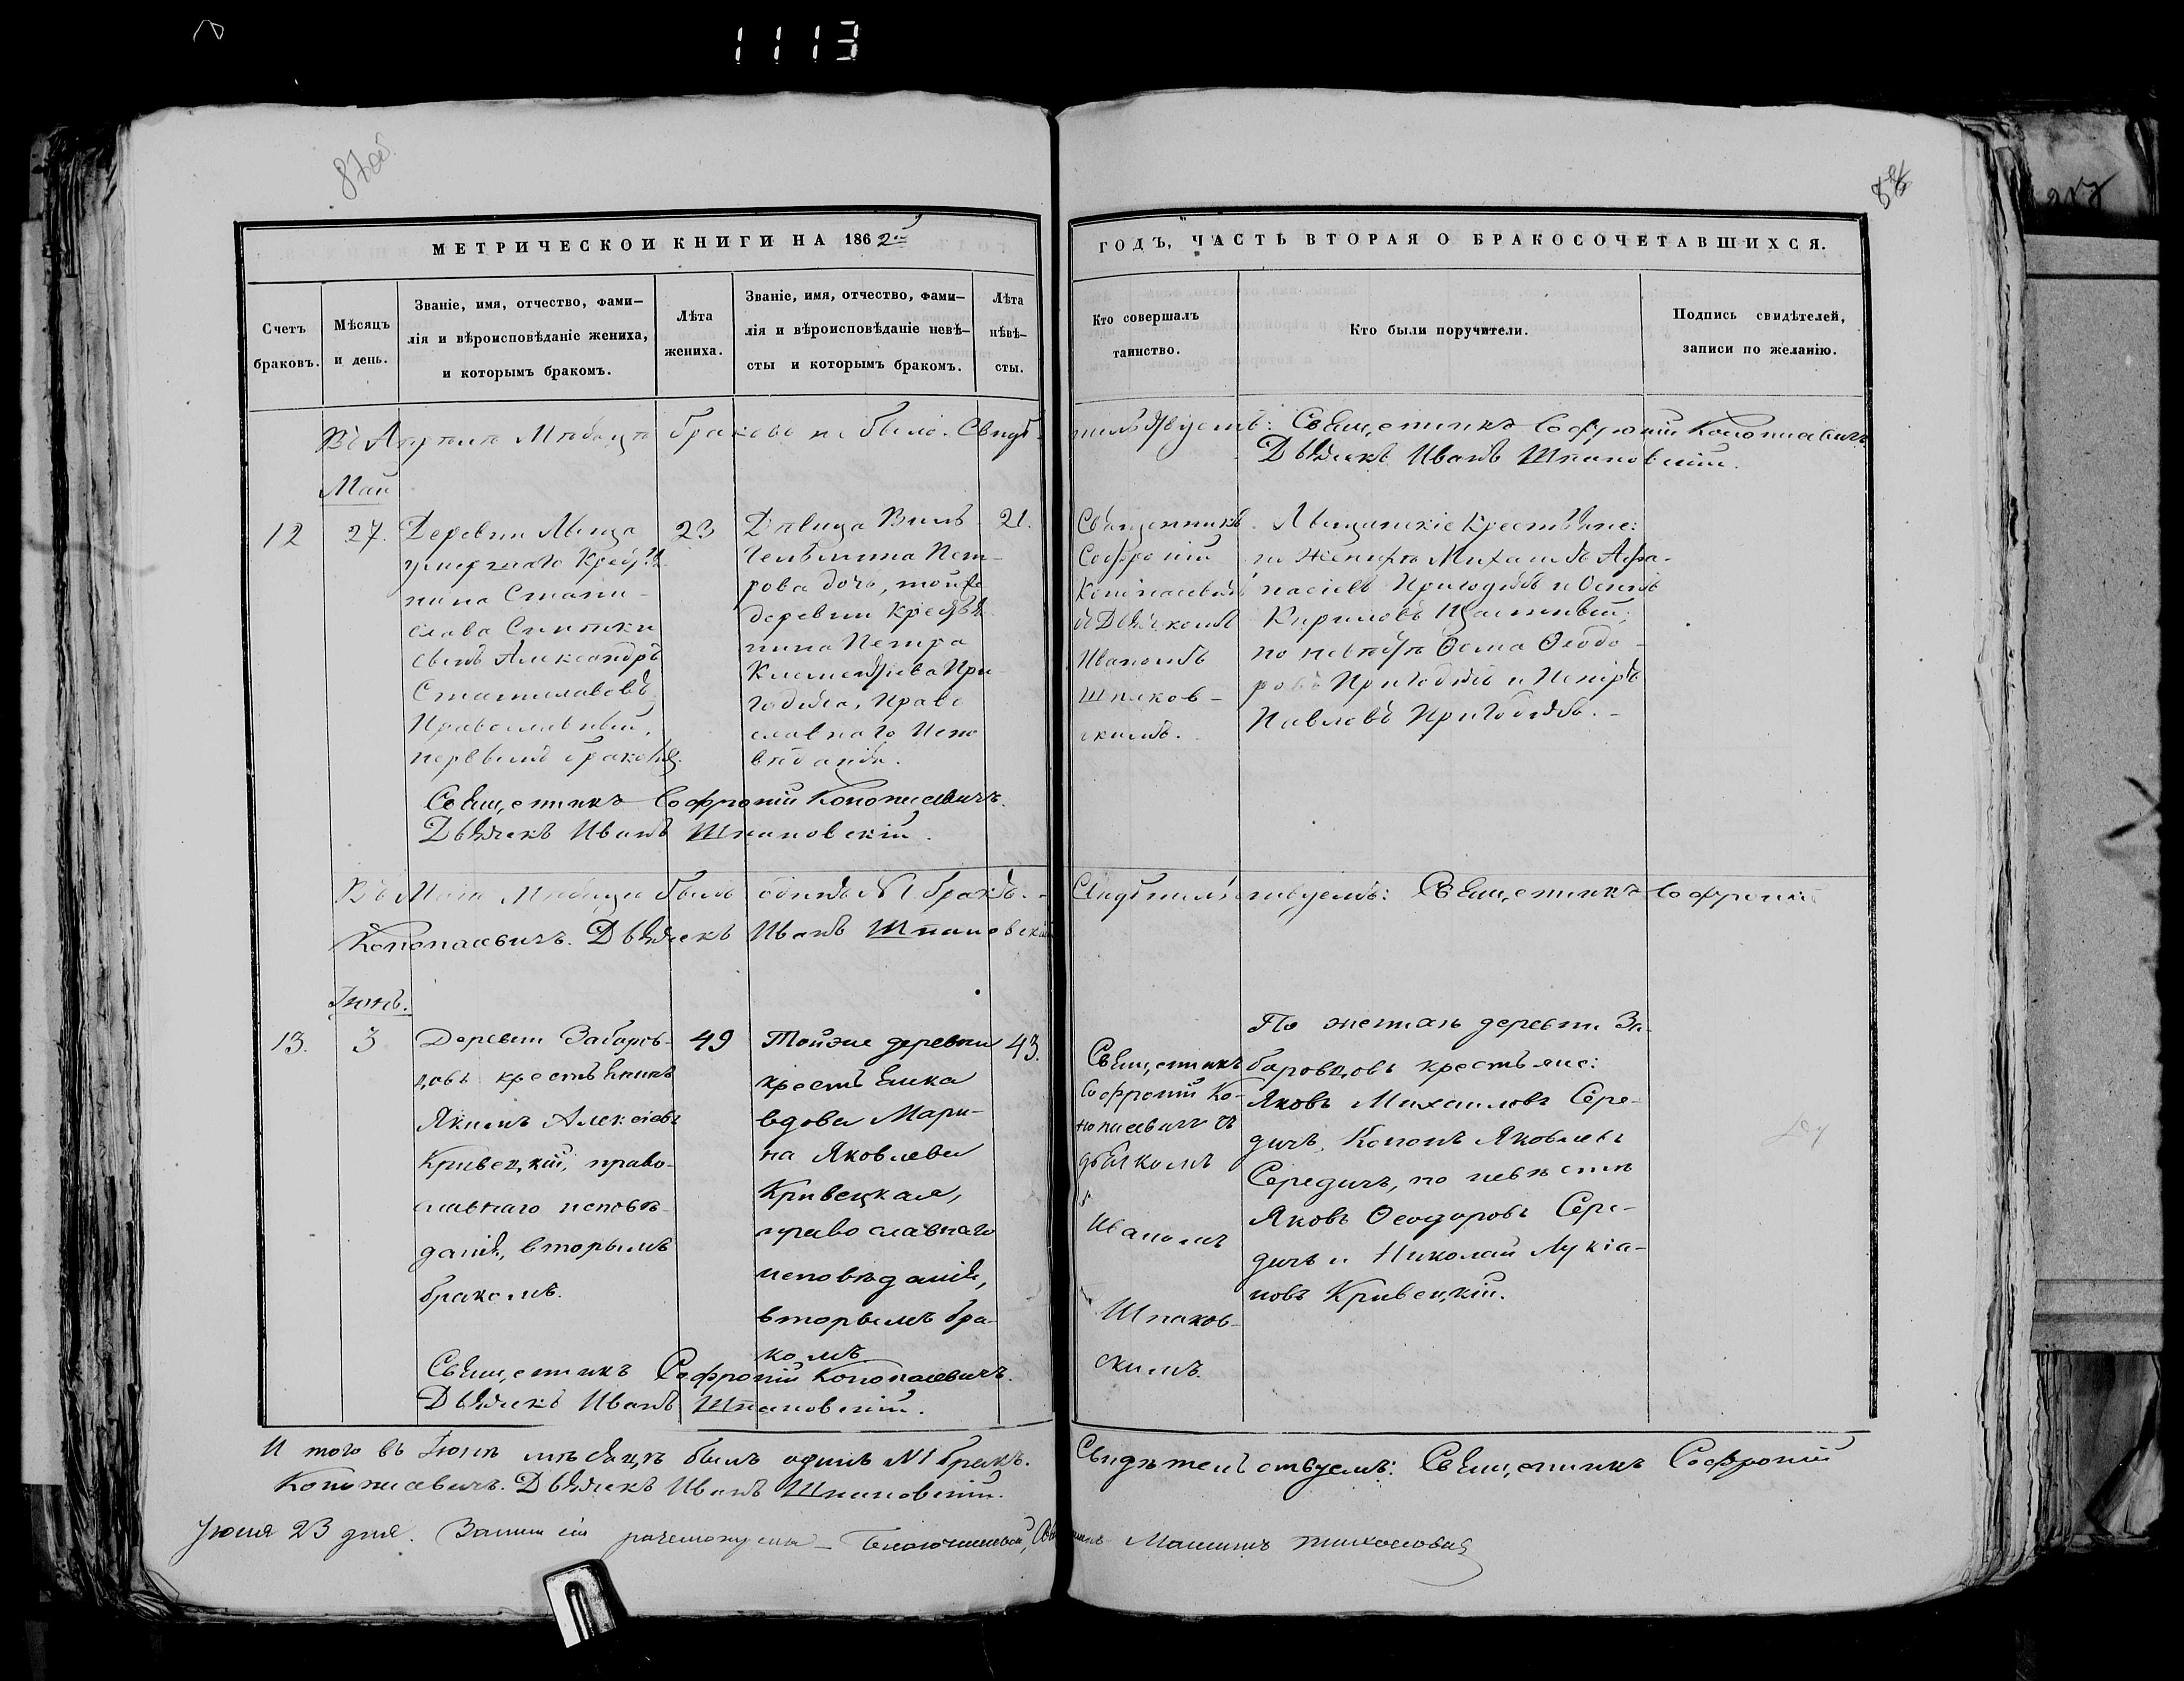 1113
МЕТРИЧЕСКОИ КНИГИ НА 1862й
ГОДЪ, ЧАСТЬ ВТОРАЯ О БРАКОСОЧЕТАВШИХСЯ.
Счетъ браковъ.
Мѣсяцъ и день.
Званіе, имя, отчество, фами-
лія и вѣроисповѣданіе жениха,
и которымъ бракомъ.
Лѣта жениха.
Званіе, имя, отчество, фами-
лія и вѣроисповѣданіе невѣ-
сты и которымъ бракомъ.
Лѣта нѣвѣ-
сты.
Кто совершалъ
таинство.
Кто были поручители.
Подпись свидѣтелей,
записи по желанію.
браковъ не было. Свидѣ-
тельствуемъ: Священникъ Софроній Конопасевичъ
Дьячекъ Иванъ Шпаковскій.
Май
12
27.
Деревни
умершаго
нина Стани-
слава
сынъ Александръ
Станиславовъ
Православный,
первымъ бракомъ.
23
Дѣвица
Пет-
рова дочь, той же
деревни
нина Петра
При-
Право
славнаго Испо
вѣданія.
21.
Священникъ
Софроній
Конопасевичъ
съ Дьячкомъ
Иваномъ
Шпаков-
скимъ.
Крестьяне:
по Женихѣ Михаилъ Афа-
насіевъ и Осипъ
Кириловъ
по невѣстѣ Ѳома Ѳеодо-
ровъ и Петръ
Павловъ
Священникъ Софроній Конопасевичъ.
Дьячекъ Иванъ Шпаковскій.
Въ Маѣ Мѣсяцѣ былъ одинъ №1 бракъ. -
Свидѣтельствуемъ: Священникъ Софроній
Конопасевичъ. Дьячекъ Иванъ Шпаковскій
Іюнь.
13.
3
Деревни Заборов-
цовъ крестьянинъ
Якимъ Алексіевъ
Кривецкій, право-
славнаго исповѣ-
данія, вторымъ
бракомъ.
49
Тойже деревни
крестьянка
вдова Мари-
на Яковлева
Кривецкая,
православнаго
исповѣданія,
вторымъ бра-
комъ
43.
Священникъ
Софроній Ко-
нопасевичъ съ
дьячкомъ
Иваномъ
Шпаков-
скимъ.
По женихѣ деревни За-
боровцовъ крестьяне:
Яковъ Михаиловъ Сере-
дичъ, Кононъ Яковлевъ
Середичъ, по невѣстѣ
Яковъ Ѳеодоровъ Сере-
дичъ и Николай Лукіа-
новъ Кривецкій.
Священникъ Софроній Конопасевичъ.
Дьячекъ Иванъ Шпаковскій.
И того въ Іюнѣ мѣсяцѣ былъ одинъ №1 бракъ.
Свидѣтельствуемъ: Священникъ Софроній
Конопасевичъ. Дьячекъ Иванъ Шпаковскій.
Іюня 23 дня.